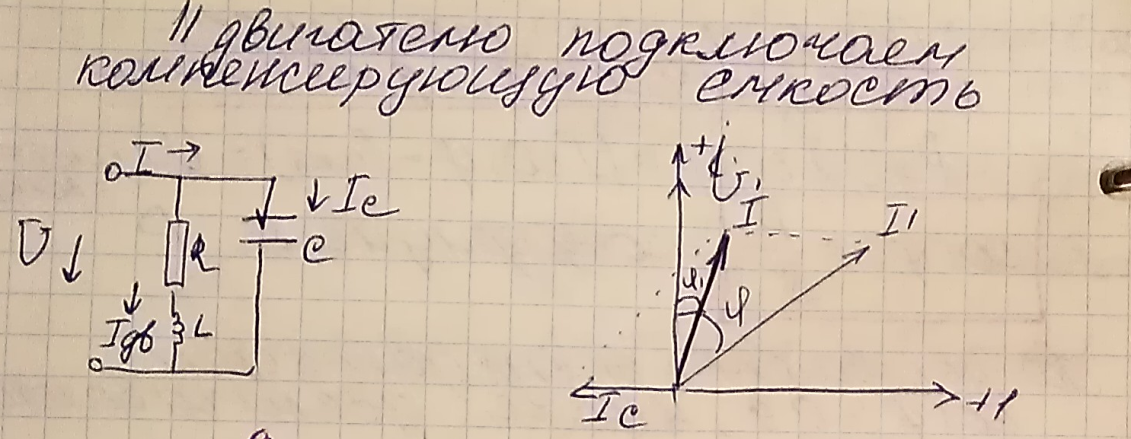 || двигателю подключаем
компенсирующую емкость
I →
↓ Ic
U ↓
R
C
↓
Iдв
L
+j
U
I
I1
φ1
φ
Ic
+1